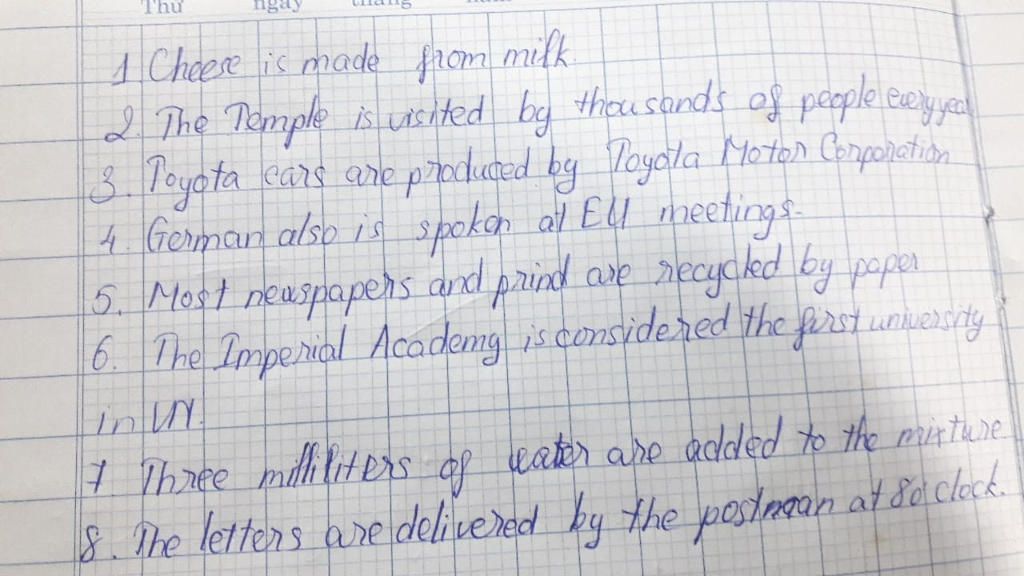 Thứ ngày tháng năm
1 Cheese is made from milk.
2. The Temple is visited by thousands of people every year
3. Toyota cars are produced by Toyota Motor Corporation
4. German also is spoken at EU meetings.
5. Most newspapers and prind are recycled by paper
6. The Imperial Academy is considered the first university
in VN.
7 Three milliliters of water are added to the mixture
8. The letters are delivered by the postman at 8 o'clock.